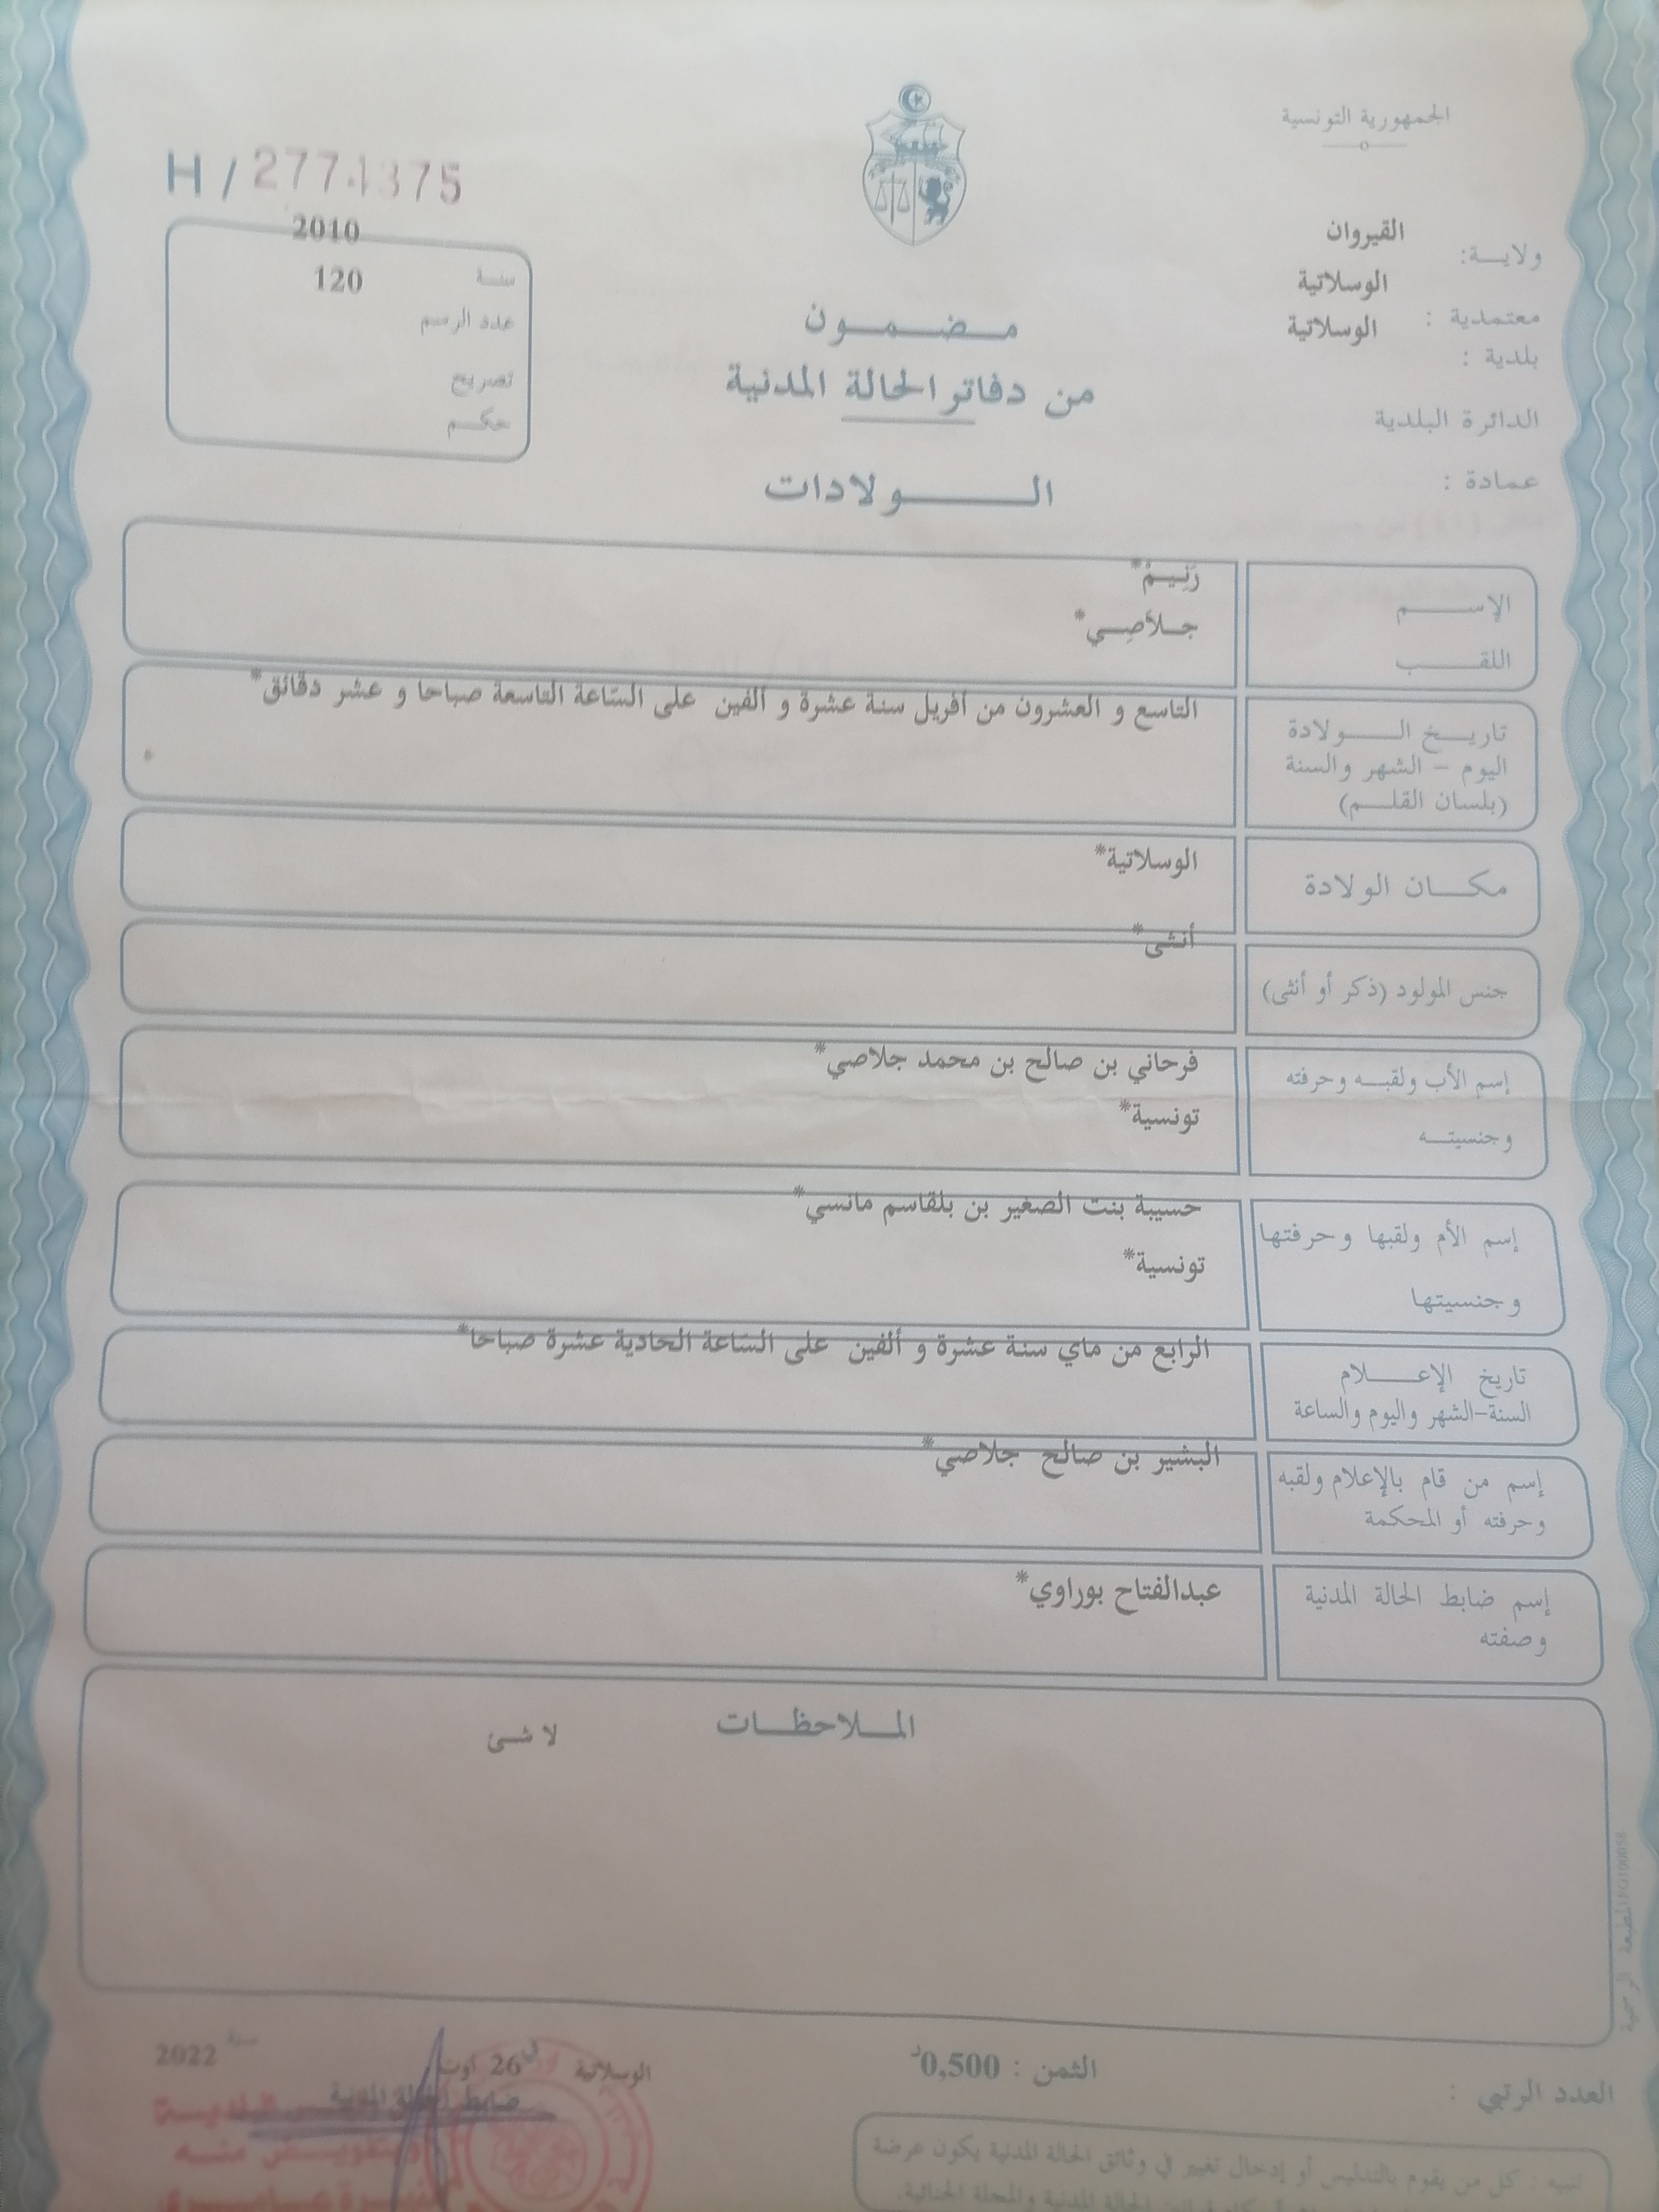 الجمهورية التونسية
ولايـــة: القيروان
معتمدية : الوسلاتية
بلدية : الوسلاتية
الدائرة البلدية
عمادة :
H / 2774375
سنـــة 2010
عدد الرسم 120
تصريح
حكـــم
مـــضـــمـــون
من دفاتر الحالة المدنية
الـــــولادات
الإســـــم رَنِيـمْ*
اللقــــب جـلاَصِـي*
تاريـــخ الـــــولادة التاسع و العشرون من أفريل سنة عشرة و ألفين على السّاعة التاسعة صباحا و عشر دقائق*
اليوم – الشهر والسنة *
(بلسان القلـــم)
مكـــان الولادة الوسلاتية*
جنس المولود (ذكر أو أنثى) أنثى*
إسم الأب ولقبـــه وحرفته فرحاني بن صالح بن محمد جلاصي*
وجنسيتـــه تونسية*
إسم الأم ولقبها وحرفتها حسيبة بنت الصغير بن بلقاسم مانسي*
وجنسيتها تونسية*
تاريخ الإعـــــلام الرابع من ماي سنة عشرة و ألفين على السّاعة الحادية عشرة صباحا*
السنة-الشهر واليوم والساعة
إسم من قام بالإعلام ولقبه البشير بن صالح جلاصي*
وحرفته أو المحكمة
إسم ضابط الحالة المدنية عبدالفتاح بوراوي*
وصفته
المـــلاحظـــات
لا شئ
المطبعة الرسمية
العدد الرتبي :
الثمن : 0,500د
الوسلاتية في 26 أوت سنة 2022
ضابط الحالة المدنية
البلديـــة
وبتفويـــض منـــه
تنبيه : كل من يقوم بالتدليس أو إدخال تغيير في وثائق الحالة المدنية يكون عرضة
الحالة المدنية والمجلة الجنائية.